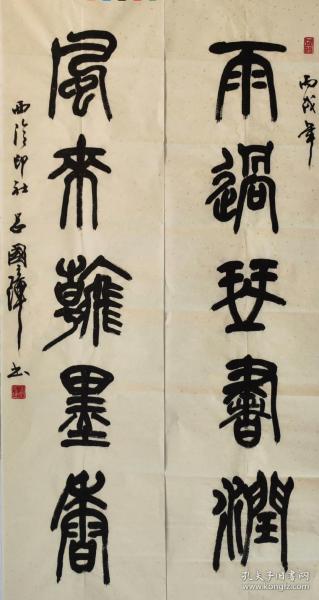 丙戌年
雨過琴書潤
風來翰墨香
西泠印社呂國璋書
孔夫子旧书网